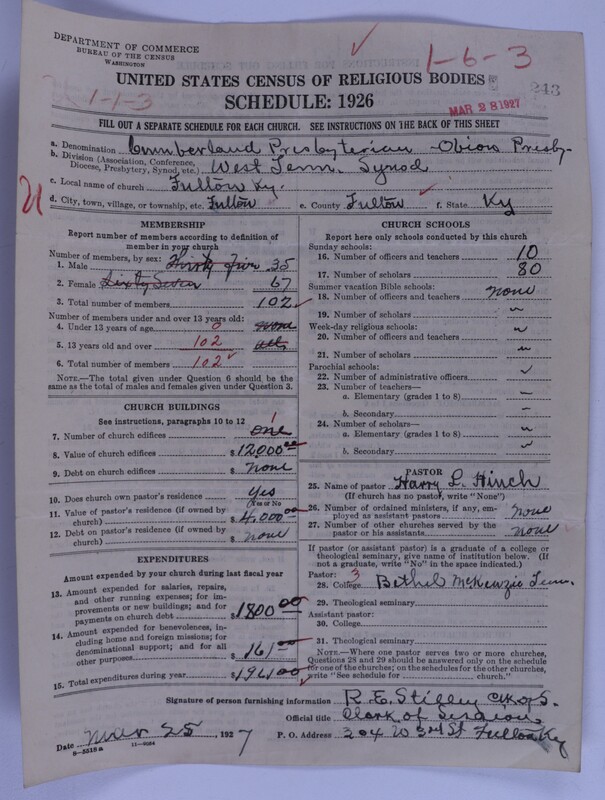 DEPARTMENT OF COMMERCE
BUREAU OF THE CENSUS
WASHINGTON
1-6-3
1-1-3
243
UNITED STATES CENSUS OF RELIGIOUS BODIES
SCHEDULE: 1926
MAR 28 1927
FILL OUT A SEPARATE SCHEDULE FOR EACH CHURCH. SEE INSTRUCTIONS ON THE BACK OF THIS SHEET
a. Denomination Cumberland Presbyterian - Obion Presby-
b. Division (Association, Conference, Diocese, Presbytery, Synod, etc.) West Tenn. Synod
c. Local name of church Fulton Ky.
d. City, town, village, or township, etc. Fulton e. County Fulton f. State Ky
MEMBERSHIP
Report number of members according to definition of
member in your church
Number of members, by sex:
1. Male Thirty Five 35
2. Female Sixty Seven 67
3. Total number of members 102
Number of members under and over 13 years old:
4. Under 13 years of age 0 none
5. 13 years old and over 102 all
6. Total number of members 102
NOTE.—The total given under Question 6 should be
the same as the total of males and females given under Question 3.
CHURCH BUILDINGS
See instructions, paragraphs 10 to 12
7. Number of church edifices one 1
8. Value of church edifices $12000.00
9. Debt on church edifices $ none
10. Does church own pastor's residence yes
Yes or No
11. Value of pastor's residence (if owned by
church) $4,000.00
12. Debt on pastor's residence (if owned by
church) $ none
EXPENDITURES
Amount expended by your church during last fiscal year
13. Amount expended for salaries, repairs,
and other running expenses; for im-
provements or new buildings; and for
payments on church debt $1800.00
14. Amount expended for benevolences, in-
cluding home and foreign missions; for
denominational support; and for all
other purposes $161.00
15. Total expenditures during year $1961.00
CHURCH SCHOOLS
Report here only schools conducted by this church
Sunday schools:
16. Number of officers and teachers 10
17. Number of scholars 80
Summer vacation Bible schools:
18. Number of officers and teachers none
19. Number of scholars
Week-day religious schools:
20. Number of officers and teachers
21. Number of scholars
Parochial schools:
22. Number of administrative officers
23. Number of teachers—
a. Elementary (grades 1 to 8)
b. Secondary
24. Number of scholars—
a. Elementary (grades 1 to 8)
b. Secondary
PASTOR
25. Name of pastor Harry L. Hinch
(If church has no pastor, write "None")
26. Number of ordained ministers, if any, em-
ployed as assistant pastors none
27. Number of other churches served by the
pastor or his assistants none
If pastor (or assistant pastor) is a graduate of a college or
theological seminary, give name of institution below. (If
not a graduate, write "No" in the space indicated.)
Pastor: 3
28. College Bethel McKenzie Tenn.
29. Theological seminary
Assistant pastor:
30. College
31. Theological seminary
NOTE.—Where one pastor serves two or more churches,
Questions 28 and 29 should be answered only on the schedule
for one of the churches; on the schedules for the other churches,
write "See schedule for church."
Signature of person furnishing information R. E. Stilley
Official title Clerk of Session
Date Mar 25, 1927 P. O. Address 204 W 3rd St Fulton Ky
8-5518 a 11-9124